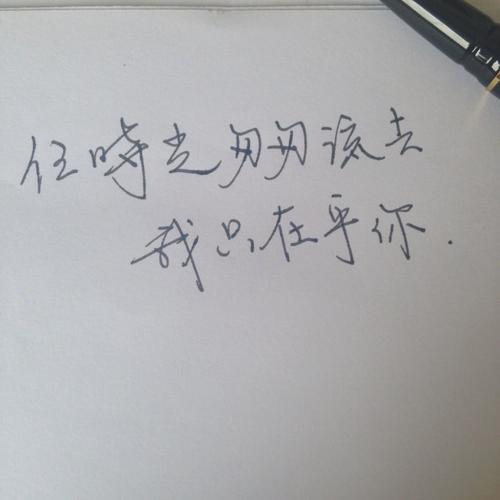 任時光匆匆该去
我只在乎你.